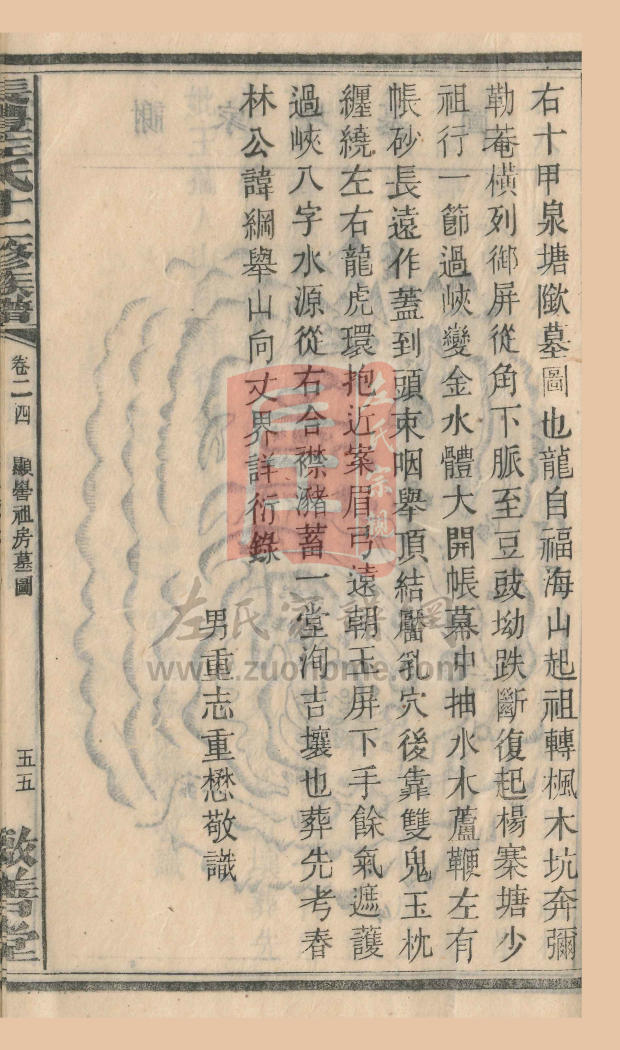 右十甲泉塘歘墓圖也龍自福海山起祖轉楓木坑奔彌
勒菴橫列御屏從角下脈至豆豉坳跌斷復起楊寨塘少
祖行一節過峽變金水體大開帳幕中抽水木蘆鞭左有
帳砂長遠作蓋到頭束咽舉頂結靨乳穴後靠雙鬼玉枕
纏繞左右龍虎環抱近案眉弓遠朝玉屏下手餘氣遮護
過峽八字水源從右合襟瀦蓄一堂洵吉壤也葬先考春
林公諱綱舉山向丈界詳衍錄
男重志重懋敬識
左氏十二修族譜
卷二四
顯譽祖房墓圖
五五
敬書堂
左氏宗親
左氏家譜網
www.zuohome.com